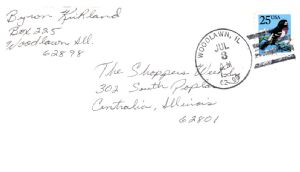 Byron Kirkland
Box 225
Woodlawn Ill.
62898
25 USA
WOODLAWN, IL
JUL
3
The Shoppers Weekly
302 South Poplar
Centralia, Illinois
62801